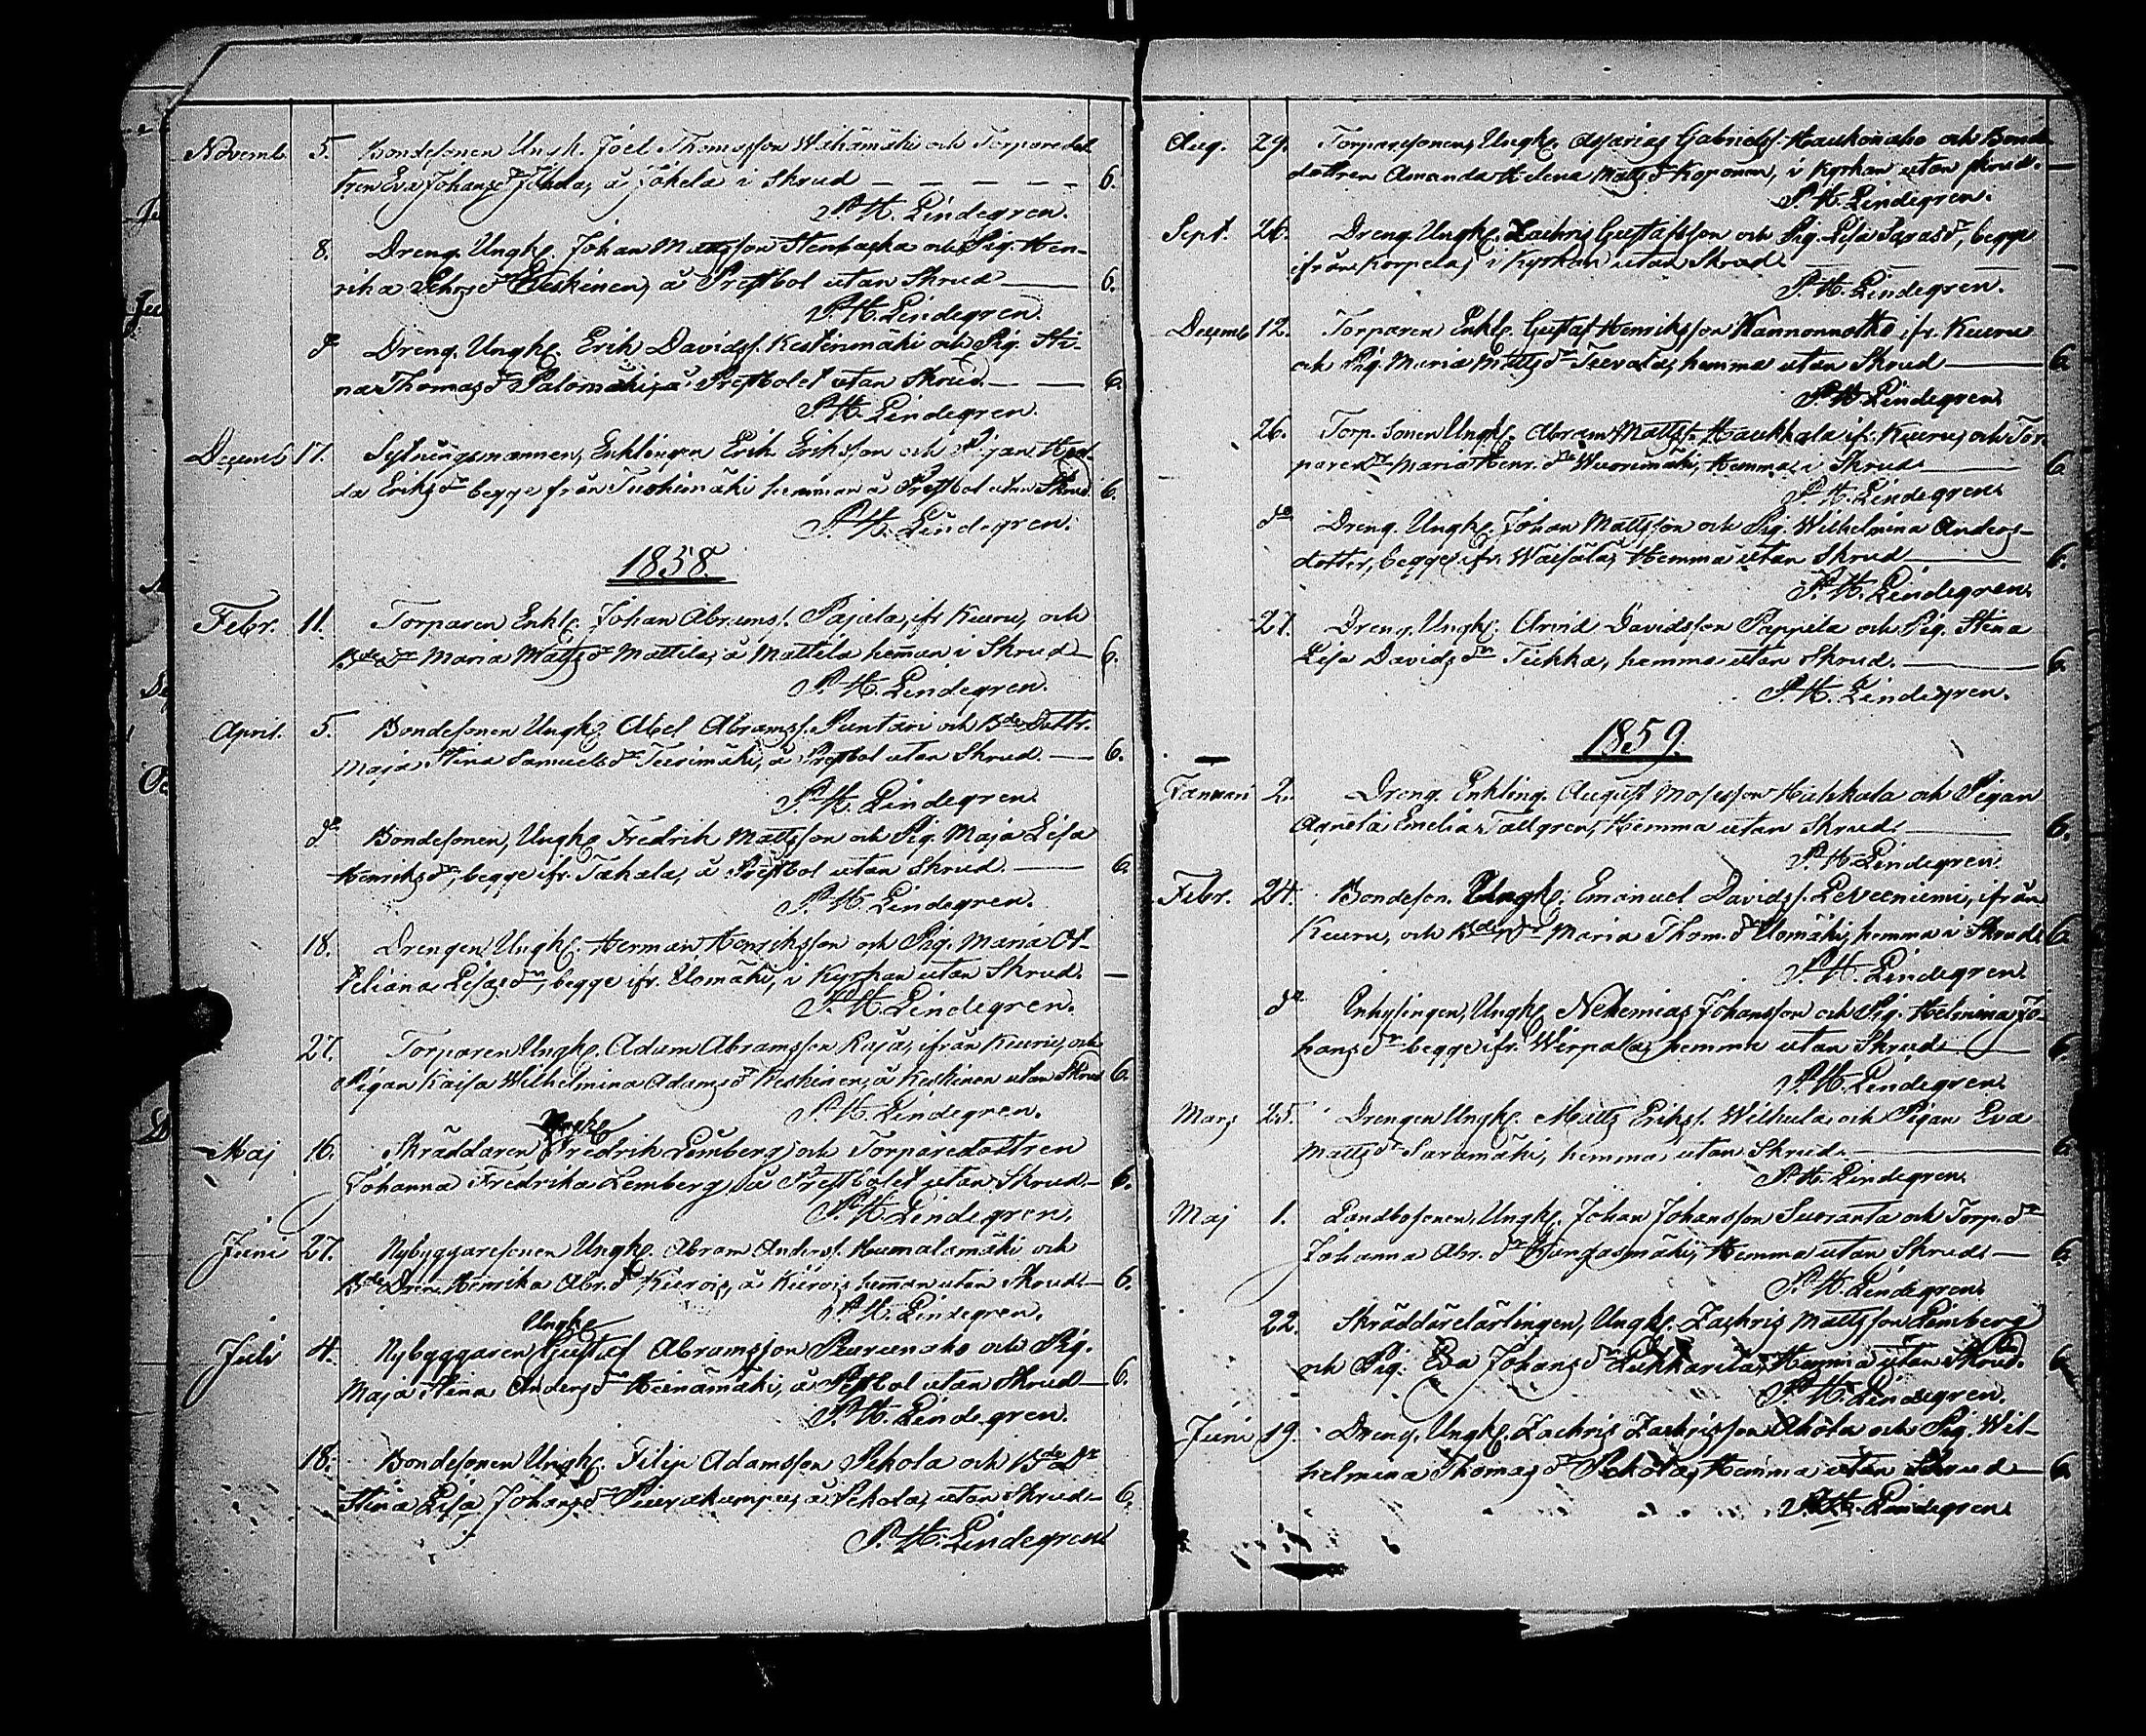 Novemb. 5. Bondesonen Ungk. Joel Thomasson Wähämäki och Torparedot
tren Eva Johansdr Jokela, å Jokela i Skrud — 6.
P. H. Lindegren.
8. Dreng. Ungk. Johan Mattsson Stenbacka och Pig. Hen-
rika Keskinen, å Prestbol utan Skrud — 6.
P. H. Lindegren.
do Dreng. Ungk. Erik Davidss. Keskinmäki och Pig. Sti-
na Thomasdr Palomäki, å Prestbolet utan Skrud — 6.
P. H. Lindegren.
Decemb. 17. Sytningsmannen, Enklingen Erik Eriksson och Pigan Hed-
da Eriksdr begge från Tuohimäki hemman å Prestbol utan Skrud 6.
P. H. Lindegren.
1858.
Febr. 11. Torparen Enkl. Johan Abramss. Pajala, ifr. Keuru, och
Bdedr Maria Mattsdr Mattila, å Mattila heman i Skrud — 6.
P. H. Lindegren.
April. 5. Bondesonen Ungk. Abel Abramss. Puntari och Bde Dottr.
Maja Stina Samuelsdr Teerimäki, å Prestbol utan Skrud. — 6.
P. H. Lindegren.
do Bondesonen, Ungk. Fredrik Mattsson och Pig. Maja Lisa
Henriksdr, begge ifr. Takala, å Prestbol utan Skrud. — 6.
P. H. Lindegren.
18. Drengen, Ungk. Herman Henriksson och Pig. Maria Ot-
teliana Lisasdr, begge ifr. Ulomäki, i Kyrkan utan Skrud. —
P. H. Lindegren.
27. Torparen Ungk. Adam Abramsson Raja, ifrån Keuru, och
Pigan Kaisa Wilhelmina Adamsdr Keskinen, å Keskinen utan Skrud 6.
P. H. Lindegren.
Ungk.
Maj 16. Skräddaren Fredrik Lemberg och Torparedottren
Johanna Fredrika Lemberg, å Prestbolet utan Skrud. — 6.
P. H. Lindegren.
Juni 27. Nybyggaresonen Ungk. Abram Anderss. Humalamäki och
Bde Dren Henrika Abr.dr Kiirois, å Kiirois heman utan Skrud. — 6.
P. H. Lindegren.
Ungk.
Juli 4. Nybyggaren Gustaf Abramsson Pureunaho och Pig.
Maja Stina Andersdr Heinämäki, å Prestbol utan Skrud — 6.
P. H. Lindegren.
18. Bondesonen Ungk. Filip Adamsson Pekola och Bde Dr
Stina Lisa Johansdr å Pekola, utan Skrud. — 6.
P. H. Lindegren
Aug. 29. Torparesonen, Ungk. Asarias Gabrielss. Haukoniaho och Bonde-
dottren Amanda Helena Mattsdr Koponen, i Kyrkan utan skrud. —
P. H. Lindegren.
Sept. 26. Dreng. Ungk. Zachris Gustafsson och Pig. Lisa Sarasdr, begge
ifrån Korpela, i Kyrkan utan Skrud —
P. H. Lindegren.
Decemb. 12. Torparen Enkl. Gustaf Henriksson Kannonnotko ifr. Keuru
och Pig. Maria Mattsdr Teevala, hemma utan Skrud — 6.
P. H. Lindegren.
26. Torp. Sonen Ungk. Abram Mattss. Haukkala ifr. Keuru, och Tor-
paredr Maria Henr.dr Wuorimäki, Hemma i Skrud — 6.
P. H. Lindegren.
do Dreng. Ungk. Johan Mattsson och Pig. Wilhelmina Anders-
dotter, begge ifr. Wäisälä, Hemma utan Skrud — 6.
P. H. Lindegren.
27. Dreng. Ungk. Arvid Davidsson Pappila och Pig. Stina
Lisa Davidsdr Tiikka, hemma utan Skrud. — 6.
P. H. Lindegren.
1859.
Januari 2. Dreng. Enkling. August Mosesson Huhkala och Pigan
Agneta Emelia Tallgren, Hemma utan Skrud. — 6.
P. H. Lindegren.
Febr. 24. Bondeson. Ungk. Emanuel Davidss. Leveeniemi, ifrån
Keuru, och Bdedr Maria Thom.dr Ulomäki, hemma i Skrud. 6.
P. H. Lindegren.
do Inhysingen, Ungk. Nehemias Johansson och Pig. Helmina Jo-
hansdr begge ifr. Wirpala, hemma utan Skrud — 6.
P. H. Lindegren.
Mars 25. Drengen Ungk. Matts Erikss. Wilkula och Pigan Eva
Mattsdr Saramäki, hemma utan Skrud. — 6.
P. H. Lindegren.
Maj 1. Landbosonen, Ungk. Johan Johansson Suoranta och Torp.dr
Johanna Abr.dr Kangasmäki, Hemma utan Skrud. — 6.
P. H. Lindegren.
22. Skräddarelärlingen, Ungk. Zachris Mattsson Lemberg
och Pig. Eva Johansdr Hemma utan Skrud. 6.
P. H. Lindegren.
Juni 19. Dreng. Ungk. Zachris Zachrisson Ahola och Pig. Wil-
helmina Thomasdr Pekola, Hemma utan Skrud — 6.
P. H. Lindegren.